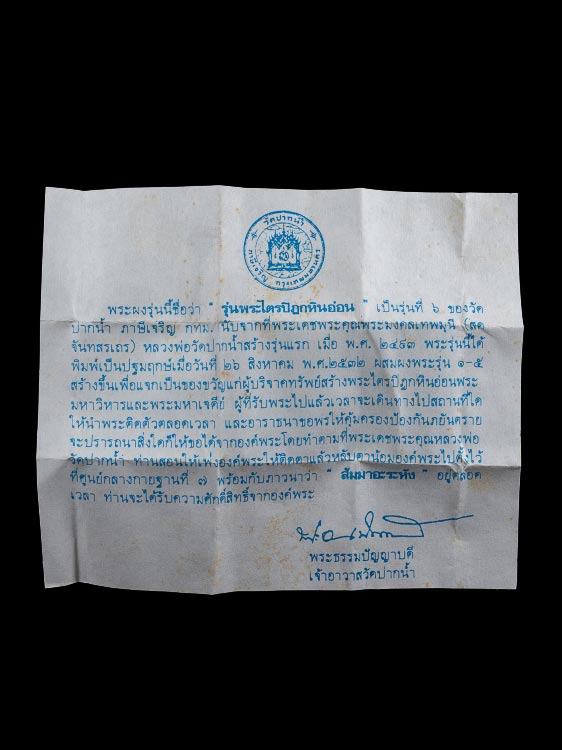 วัดปากน้ำ
ภาษีเจริญ กรุงเทพมหานคร
พระผงรุ่นนี้ชื่อว่า " รุ่นพระไตรปิฎกหินอ่อน " เป็นรุ่นที่ ๖ ของวัด
ปากน้ำ ภาษีเจริญ กทม. นับจากที่พระเดชพระคุณพระมงคลเทพมุนี (สด
จันทสรเถร) หลวงพ่อวัดปากน้ำสร้างรุ่นแรก เมื่อ พ.ศ. ๒๔๙๓ พระรุ่นนี้ได้
พิมพ์เป็นปฐมฤกษ์เมื่อวันที่ ๒๖ สิงหาคม พ.ศ.๒๕๓๒ ผสมผงพระรุ่น ๑-๕
สร้างขึ้นเพื่อแจกเป็นของขวัญแก่ผู้บริจาคทรัพย์สร้างพระไตรปิฎกหินอ่อนพระ
มหาวิหารและพระมหาเจดีย์ ผู้ที่รับพระไปแล้วเวลาจะเดินทางไปสถานที่ใด
ให้นำพระติดตัวตลอดเวลา และอาราธนาขอพรให้คุ้มครองป้องกันภยันตราย
จะปรารถนาสิ่งใดก็ให้ขอได้จากองค์พระโดยทำตามที่พระเดชพระคุณหลวงพ่อ
วัดปากน้ำ ท่านสอนให้เพ่งองค์พระให้ติดตาแล้วหลับตาน้อมองค์พระไปตั้งไว้
ที่ศูนย์กลางกายฐานที่ ๗ พร้อมกับภาวนาว่า " สัมมาอะระหัง " อยู่ตลอด
เวลา ท่านจะได้รับความศักดิ์สิทธิ์จากองค์พระ
พระธรรมปัญญาบดี
เจ้าอาวาสวัดปากน้ำ